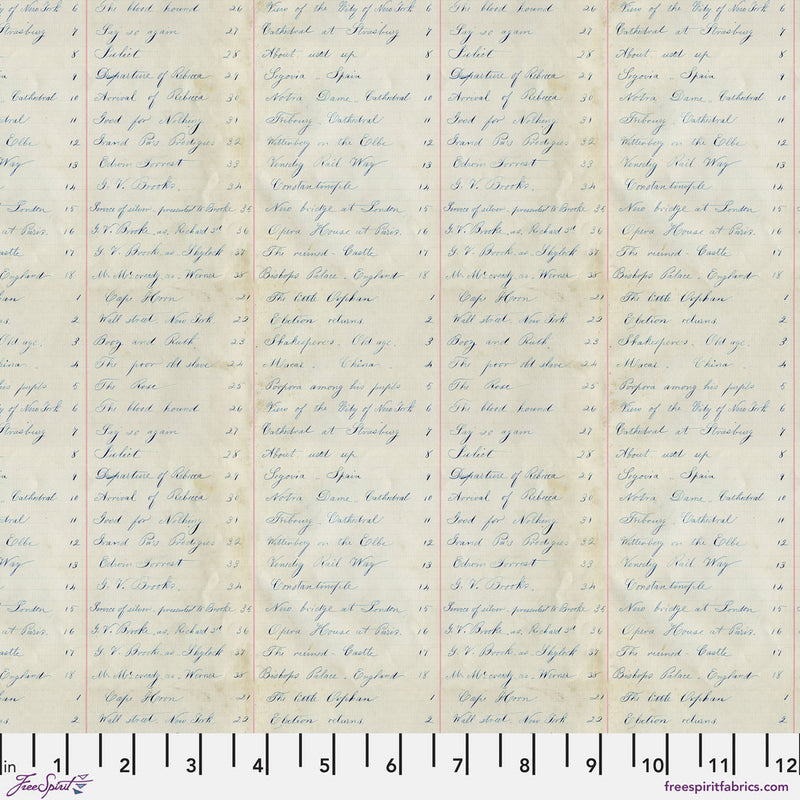 y of New York 6 The blood hound 26 View of the City of New York 6 The blood hound 26 View of the City of New York 6
Strasburg 7 Say so again 27 Cathedral at Strasburg 7 Say so again 27 Cathedral at Strasburg 7
8 Juliet 28 About used up 8 Juliet 28 About used up 8
9 Departure of Rebecca 29 Segovia - Spain 9 Departure of Rebecca 29 Segovia - Spain 9
Cathedral 10 Arrival of Rebecca 30 Notra Dame - Cathedral 10 Arrival of Rebecca 30 Notra Dame - Cathedral 10
dral 11 Good for Nothing 31 Fribourg - Cathedral 11 Good for Nothing 31 Fribourg - Cathedral 11
Elbe 12 Grand Pa's Prodigies 32 Wittenberg on the Elbe 12 Grand Pa's Prodigies 32 Wittenberg on the Elbe 12
Way 13 Edwin Forrest 33 Venedig Rail Way 13 Edwin Forrest 33 Venedig Rail Way 13
14 G. V. Brooks. 34 Constantinople 14 G. V. Brooks. 34 Constantinople 14
London 15 Service of silver - presented to Brooke 35 New bridge at London 15 Service of silver - presented to Brooke 35 New bridge at London 15
at Paris. 16 G. V. Brooke. as. Richard 3d 36 Opera House at Paris. 16 G. V. Brooke. as. Richard 3d 36 Opera House at Paris. 16
astle 17 G. V. Brooke. as. Shylock 37 The ruined - Castle 17 G. V. Brooke. as. Shylock 37 The ruined - Castle 17
England 18 Mr. McCready. as. Werner 38 Bishops Palace - England 18 Mr. McCready. as. Werner 38 Bishops Palace - England 18
han 1 Cape Horn 21 The little Orphan 1 Cape Horn 21 The little Orphan 1
ns. 2 Wall street. New York 22 Election returns. 2 Wall street. New York 22 Election returns. 2
Old age. 3 Booz and Ruth 23 Shakespere's. Old age. 3 Booz and Ruth 23 Shakespere's. Old age. 3
hina. 4 The poor old slave 24 Macai. China. 4 The poor old slave 24 Macai. China. 4
his pupils 5 The Rose 25 Porpora among his pupils 5 The Rose 25 Porpora among his pupils 5
y of New York 6 The blood hound 26 View of the City of New York 6 The blood hound 26 View of the City of New York 6
Strasburg 7 Say so again 27 Cathedral at Strasburg 7 Say so again 27 Cathedral at Strasburg 7
8 Juliet 28 About used up 8 Juliet 28 About used up 8
9 Departure of Rebecca 29 Segovia - Spain 9 Departure of Rebecca 29 Segovia - Spain 9
Cathedral 10 Arrival of Rebecca 30 Notra Dame - Cathedral 10 Arrival of Rebecca 30 Notra Dame - Cathedral 10
dral 11 Good for Nothing 31 Fribourg - Cathedral 11 Good for Nothing 31 Fribourg - Cathedral 11
Elbe 12 Grand Pa's Prodigies 32 Wittenberg on the Elbe 12 Grand Pa's Prodigies 32 Wittenberg on the Elbe 12
Way 13 Edwin Forrest 33 Venedig Rail Way 13 Edwin Forrest 33 Venedig Rail Way 13
14 G. V. Brooks. 34 Constantinople 14 G. V. Brooks. 34 Constantinople 14
London 15 Service of silver - presented to Brooke 35 New bridge at London 15 Service of silver - presented to Brooke 35 New bridge at London 15
at Paris. 16 G. V. Brooke. as. Richard 3d 36 Opera House at Paris. 16 G. V. Brooke. as. Richard 3d 36 Opera House at Paris. 16
astle 17 G. V. Brooke. as. Shylock 37 The ruined - Castle 17 G. V. Brooke. as. Shylock 37 The ruined - Castle 17
England 18 Mr. McCready. as. Werner 38 Bishops Palace - England 18 Mr. McCready. as. Werner 38 Bishops Palace - England 18
han 1 Cape Horn 21 The little Orphan 1 Cape Horn 21 The little Orphan 1
ns. 2 Wall street. New York 22 Election returns. 2 Wall street. New York 22 Election returns. 2
in 1 2 3 4 5 6 7 8 9 10 11 12
FreeSpirit freespiritfabrics.com